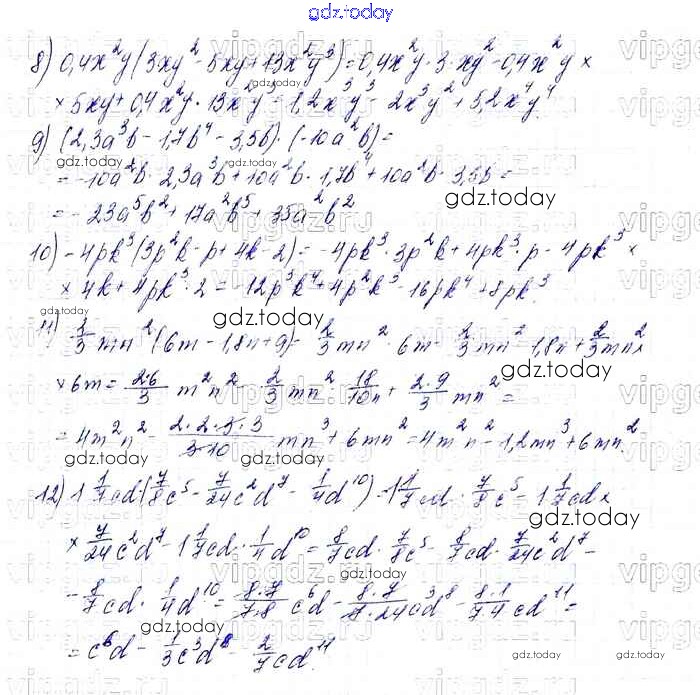 gdz.today
8) 0,4x²y(3xy² - 5xy + 13x²y³) = 0,4x²y · 3 · xy² - 0,4x²y ×
× 5xy + 0,4x²y · 13x²y³ = 1,2x³y³ - 2x³y² + 5,2x⁴y⁴
gdz.today
9) (2,3a³b - 1,7b⁴ - 3,5b) · (-10a²b) =
gdz.today
= -10a²b · 2,3a³b + 10a²b · 1,7b⁴ + 10a²b · 3,5b =
gdz.today
= -23a⁵b² + 17a²b⁵ + 35a²b²
10) -4pk³(3p²k - p + 4k - 2) = -4pk³ · 3p²k + 4pk³ · p - 4pk³ ×
× 4k + 4pk³ · 2 = -12p³k⁴ + 4p²k³ - 16pk⁴ + 8pk³.
gdz.today
11) 2/3 mn²(6m - 1,8n + 9) = 2/3 mn² · 6m - 2/3 mn² · 1,8n + 2/3 mn² ×
gdz.today
× 6m = 2·6/3 m²n² - 2/3 mn² · 18/10 n + 2·9/3 mn² =
= 4m²n² - 2·2·3·3/3·10 mn³ + 6mn² = 4m²n² - 1,2mn³ + 6mn².
gdz.today
12) 1 1/7 cd(7/8 c⁵ - 7/24 c²d⁷ - 1/4 d¹⁰) = 1 1/7 cd · 7/8 c⁵ - 1 1/7 cd ×
gdz.today
gdz.today
× 7/24 c²d⁷ - 1 1/7 cd · 1/4 d¹⁰ = 8/7 cd · 7/8 c⁵ - 8/7 cd · 7/24 c²d⁷ -
- 8/7 cd · 1/4 d¹⁰ = 8·7/7·8 c⁶d - 8·7/7·24 c³d⁸ - 8·1/7·4 cd¹¹ =
gdz.today
= c⁶d - 1/3 c³d⁸ - 2/7 cd¹¹.
gdz.today
gdz.today